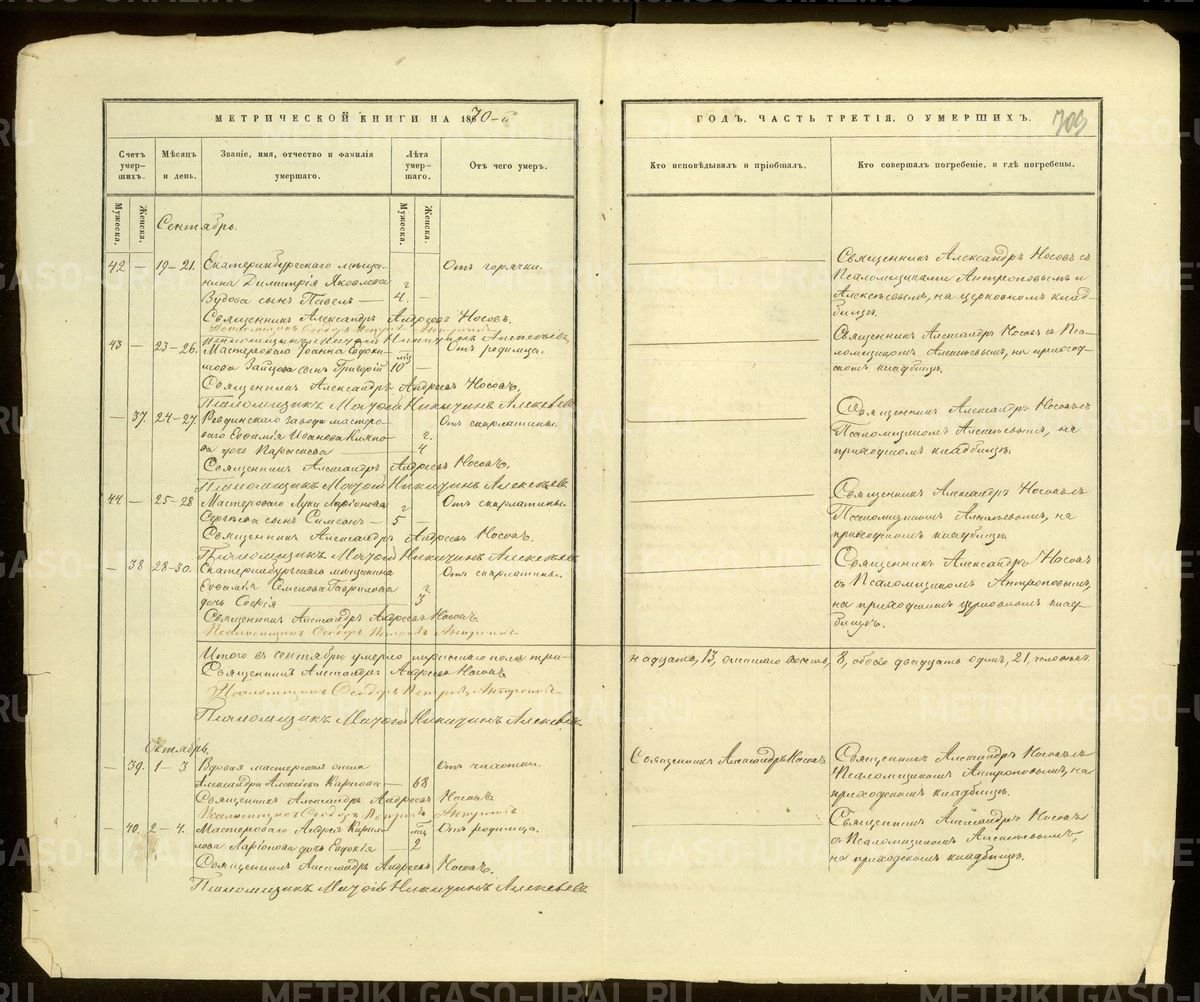 МЕТРИЧЕСКОЙ КНИГИ НА 1870-й
ГОДЪ, ЧАСТЬ ТРЕТІЯ, О УМЕРШИХЪ.
703
Счетъ умерших.
Мѣсяцъ и день.
Званіе, имя, отчество и фамилія умершаго.
Лѣта умершаго.
Отъ чего умеръ.
Кто исповѣдывалъ и пріобщалъ.
Кто совершалъ погребеніе, и гдѣ погребены.
Мужеска.
Женска.
Мужеска.
Женска.
Сентябрь.
42 — 19–21. Екатеринбургскаго мѣщанина Димитрія Яковлева
сынъ Павелъ — г 4. — Отъ горячки.
Священникъ Александръ Носовъ съ
Псаломщиками Антроповымъ и
Алексѣевымъ, на церковномъ кладбищѣ.
Священникъ Александръ Андреевъ Носовъ.
Псаломщикъ Ѳеодоръ Петровъ Антроповъ
Псаломщикъ Никитинъ Алексѣевъ
43 — 23–26. Мастероваго Іоанна Евдокимова Зайцова сынъ Григорій мц 10 — Отъ родимца.
Священникъ Александръ Носовъ съ Псаломщикомъ Алексѣевымъ, на приходскомъ кладбищѣ.
Священникъ Александръ Андреевъ Носовъ.
Псаломщикъ Никитинъ Алексѣевъ
— 37. 24–27. Ревдинскаго завода мастероваго Евѳимія Иванова
дочь Параскева — г. 4 Отъ скарлатины.
Священникъ Александръ Носовъ съ
Псаломщикомъ Алексѣевымъ, на
приходскомъ кладбищѣ.
Священникъ Александръ Андреевъ Носовъ.
Псаломщикъ Никитинъ Алексѣевъ
44 — 25–28 Мастероваго Луки Ларіонова
Сергѣева сынъ Симеонъ — г 5 — Отъ скарлатины.
Священникъ Александръ Носовъ съ
Псаломщикомъ Алексѣевымъ, на
приходскомъ кладбищѣ.
Священникъ Александръ Андреевъ Носовъ.
Псаломщикъ Никитинъ Алексѣевъ
— 38 28–30. Екатеринбургскаго мѣщанина
Евѳимія Семенова Гаврилова
дочь Софія г. 3 Отъ скарлатины.
Священникъ Александръ Носовъ
съ Псаломщикомъ Антроповымъ,
на приходскомъ церковномъ кладбищѣ.
Священникъ Александръ Андреевъ Носовъ.
Псаломщикъ Ѳеодоръ Петровъ Антроповъ
Итого въ сентябрѣ умерло мужескаго пола тринадцать, 13, женскаго восемь, 8, обоего двадцать одинъ, 21, человекъ.
Священникъ Александръ Андреевъ Носовъ
Псаломщикъ Ѳеодоръ Петровъ Антроповъ
Псаломщикъ Никитинъ Алексѣевъ
Октябрь.
— 39. 1–3 Вдовая мастерская жена
Александра Алексіева Карпова — 68 Отъ чахотки.
Священникъ Александръ Носовъ.
Священникъ Александръ Носовъ съ
Псаломщикомъ Антроповымъ, на
приходскомъ кладбищѣ.
Священникъ Александръ Андреевъ Носовъ
Псаломщикъ Ѳеодоръ Петровъ Антроповъ.
— 40. 2–4. Мастероваго Андрея Кирилова Ларіонова дочь Евдокія — мц 2 Отъ родимца.
Священникъ Александръ Носовъ
съ Псаломщикомъ Алексѣевымъ,
на приходскомъ кладбищѣ.
Священникъ Александръ Андреевъ Носовъ.
Псаломщикъ Никитинъ Алексѣевъ
METRIKI.GASO-URAL.RU